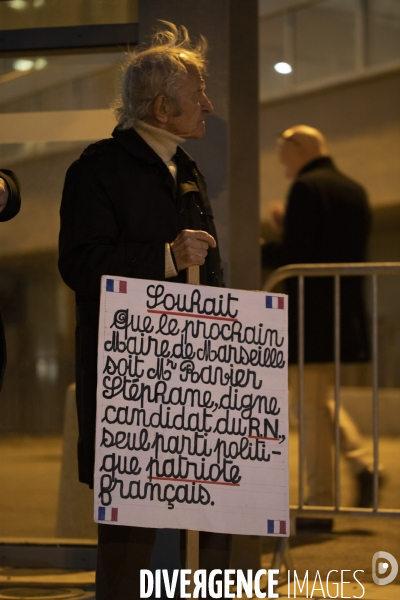 Souhait
Que le prochain
Maire de Marseille
soit Mr Ravier
Stéphane, digne
candidat du RN,
seul parti politi-
que patriote
français.
DIVERGENCE IMAGES
D